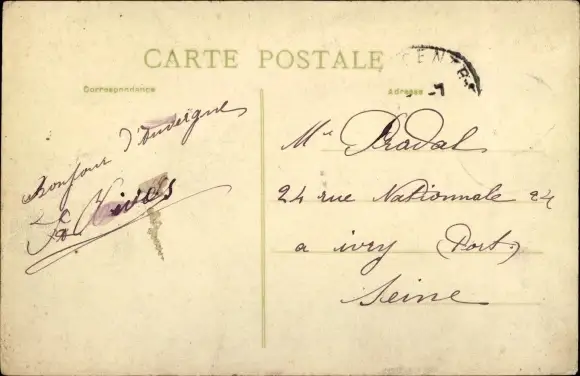 CARTE POSTALE
Correspondance
Adresse
Bonjour d'Auvergne
Mr Pradal
24 rue Nationnale 24
a ivry (Port.)
Seine